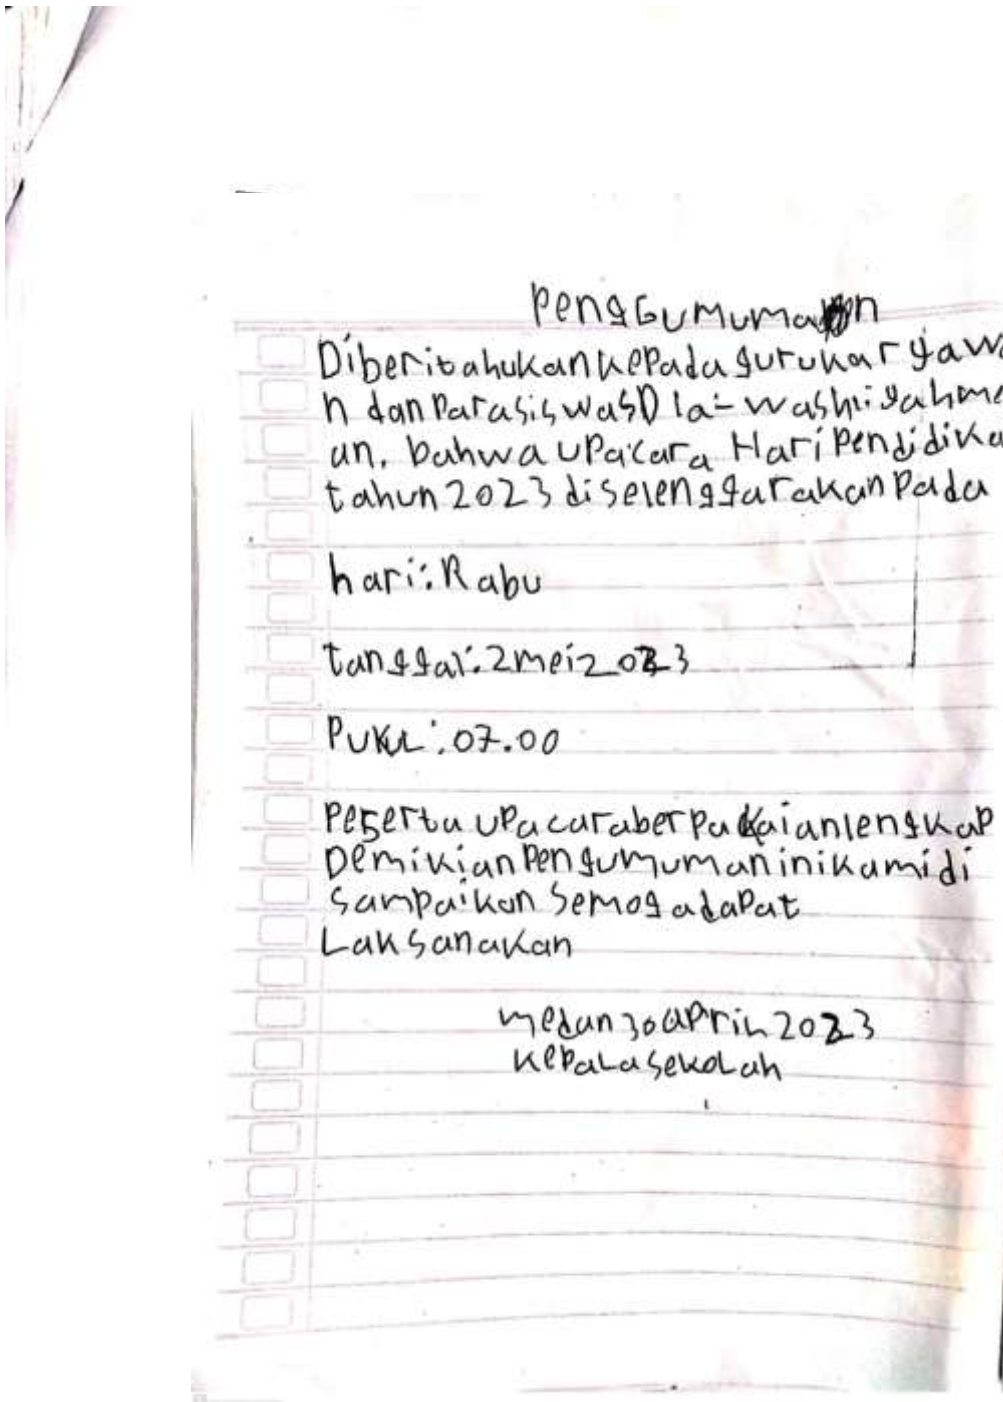 PengGumuman
Diberitahukan kepada guru karyaw
n dan Para siswa SD la-washliyah
an. bahwa upacara Hari Pendidika
tahun 2023 diselenggarakan Pada
hari: Rabu
tanggal: 2 mei 2023
Pukul: 07.00
Peserta upacara berpakaian lengkap
Demikian Pengumuman ini kami di
sampaikan semoga dapat
Laksanakan
medan 30 april 2023
Kepala sekolah